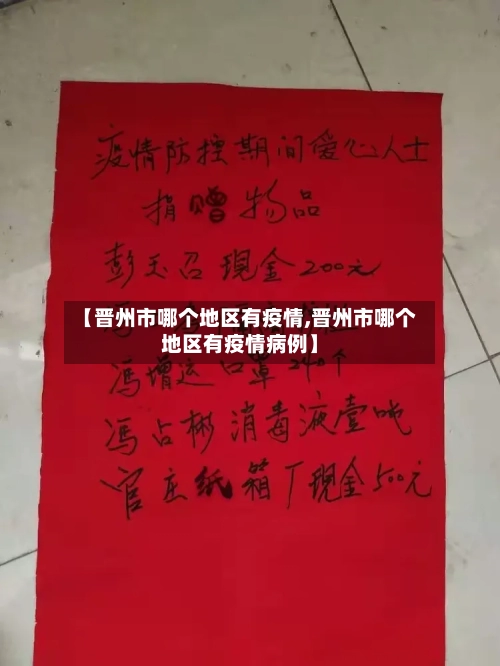 疫情防控期间爱心人士
捐赠物品
彭玉召现金200元
【晋州市哪个地区有疫情,晋州市哪个
地区有疫情病例】
冯增运口罩240个
冯占彬消毒液壹吨
官庄纸箱厂现金500元